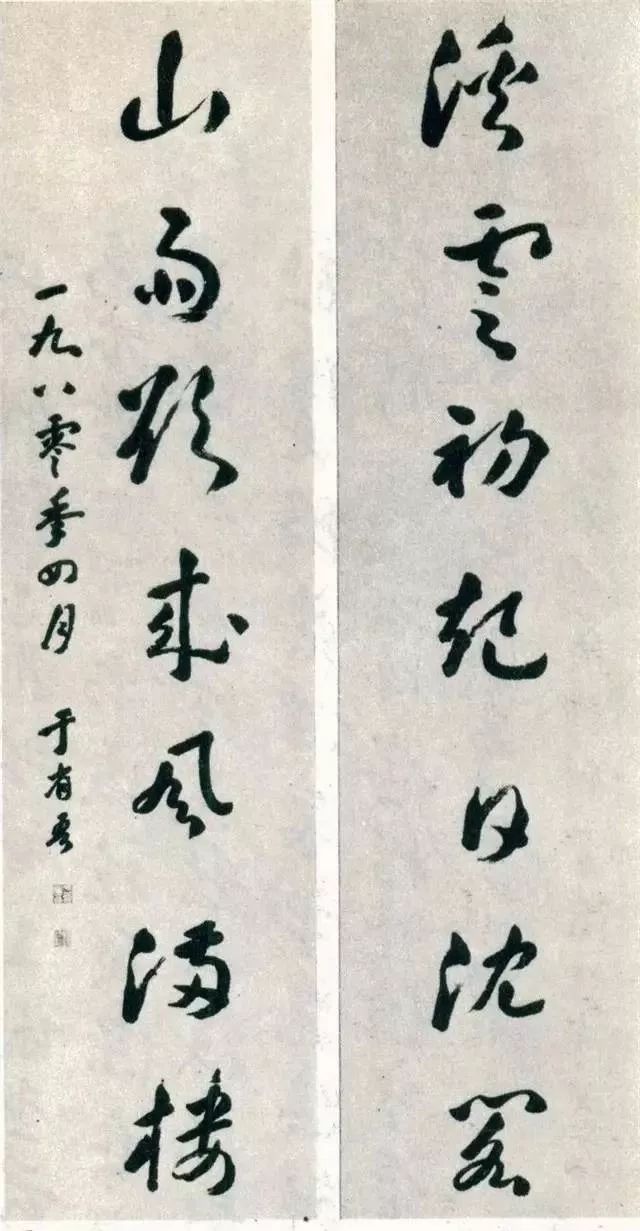 溪雲初起日沈閣
山雨欲來風滿樓
一九八零年四月 于省吾